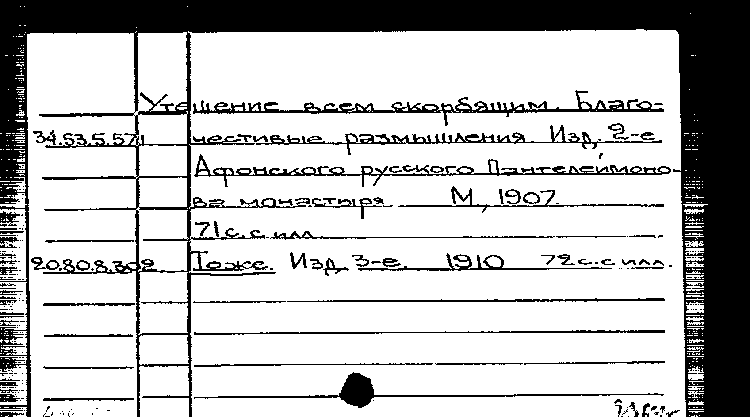 Утешение всем скорбящим. Благо-
34.53.5.571 честивые размышления. Изд. 2-е
Афонского русского Пантелеймоно-
ва монастыря М., 1907
71 с. с илл.
20.80.8.302 Тоже. Изд. 3-е. 1910 72 с. с илл.